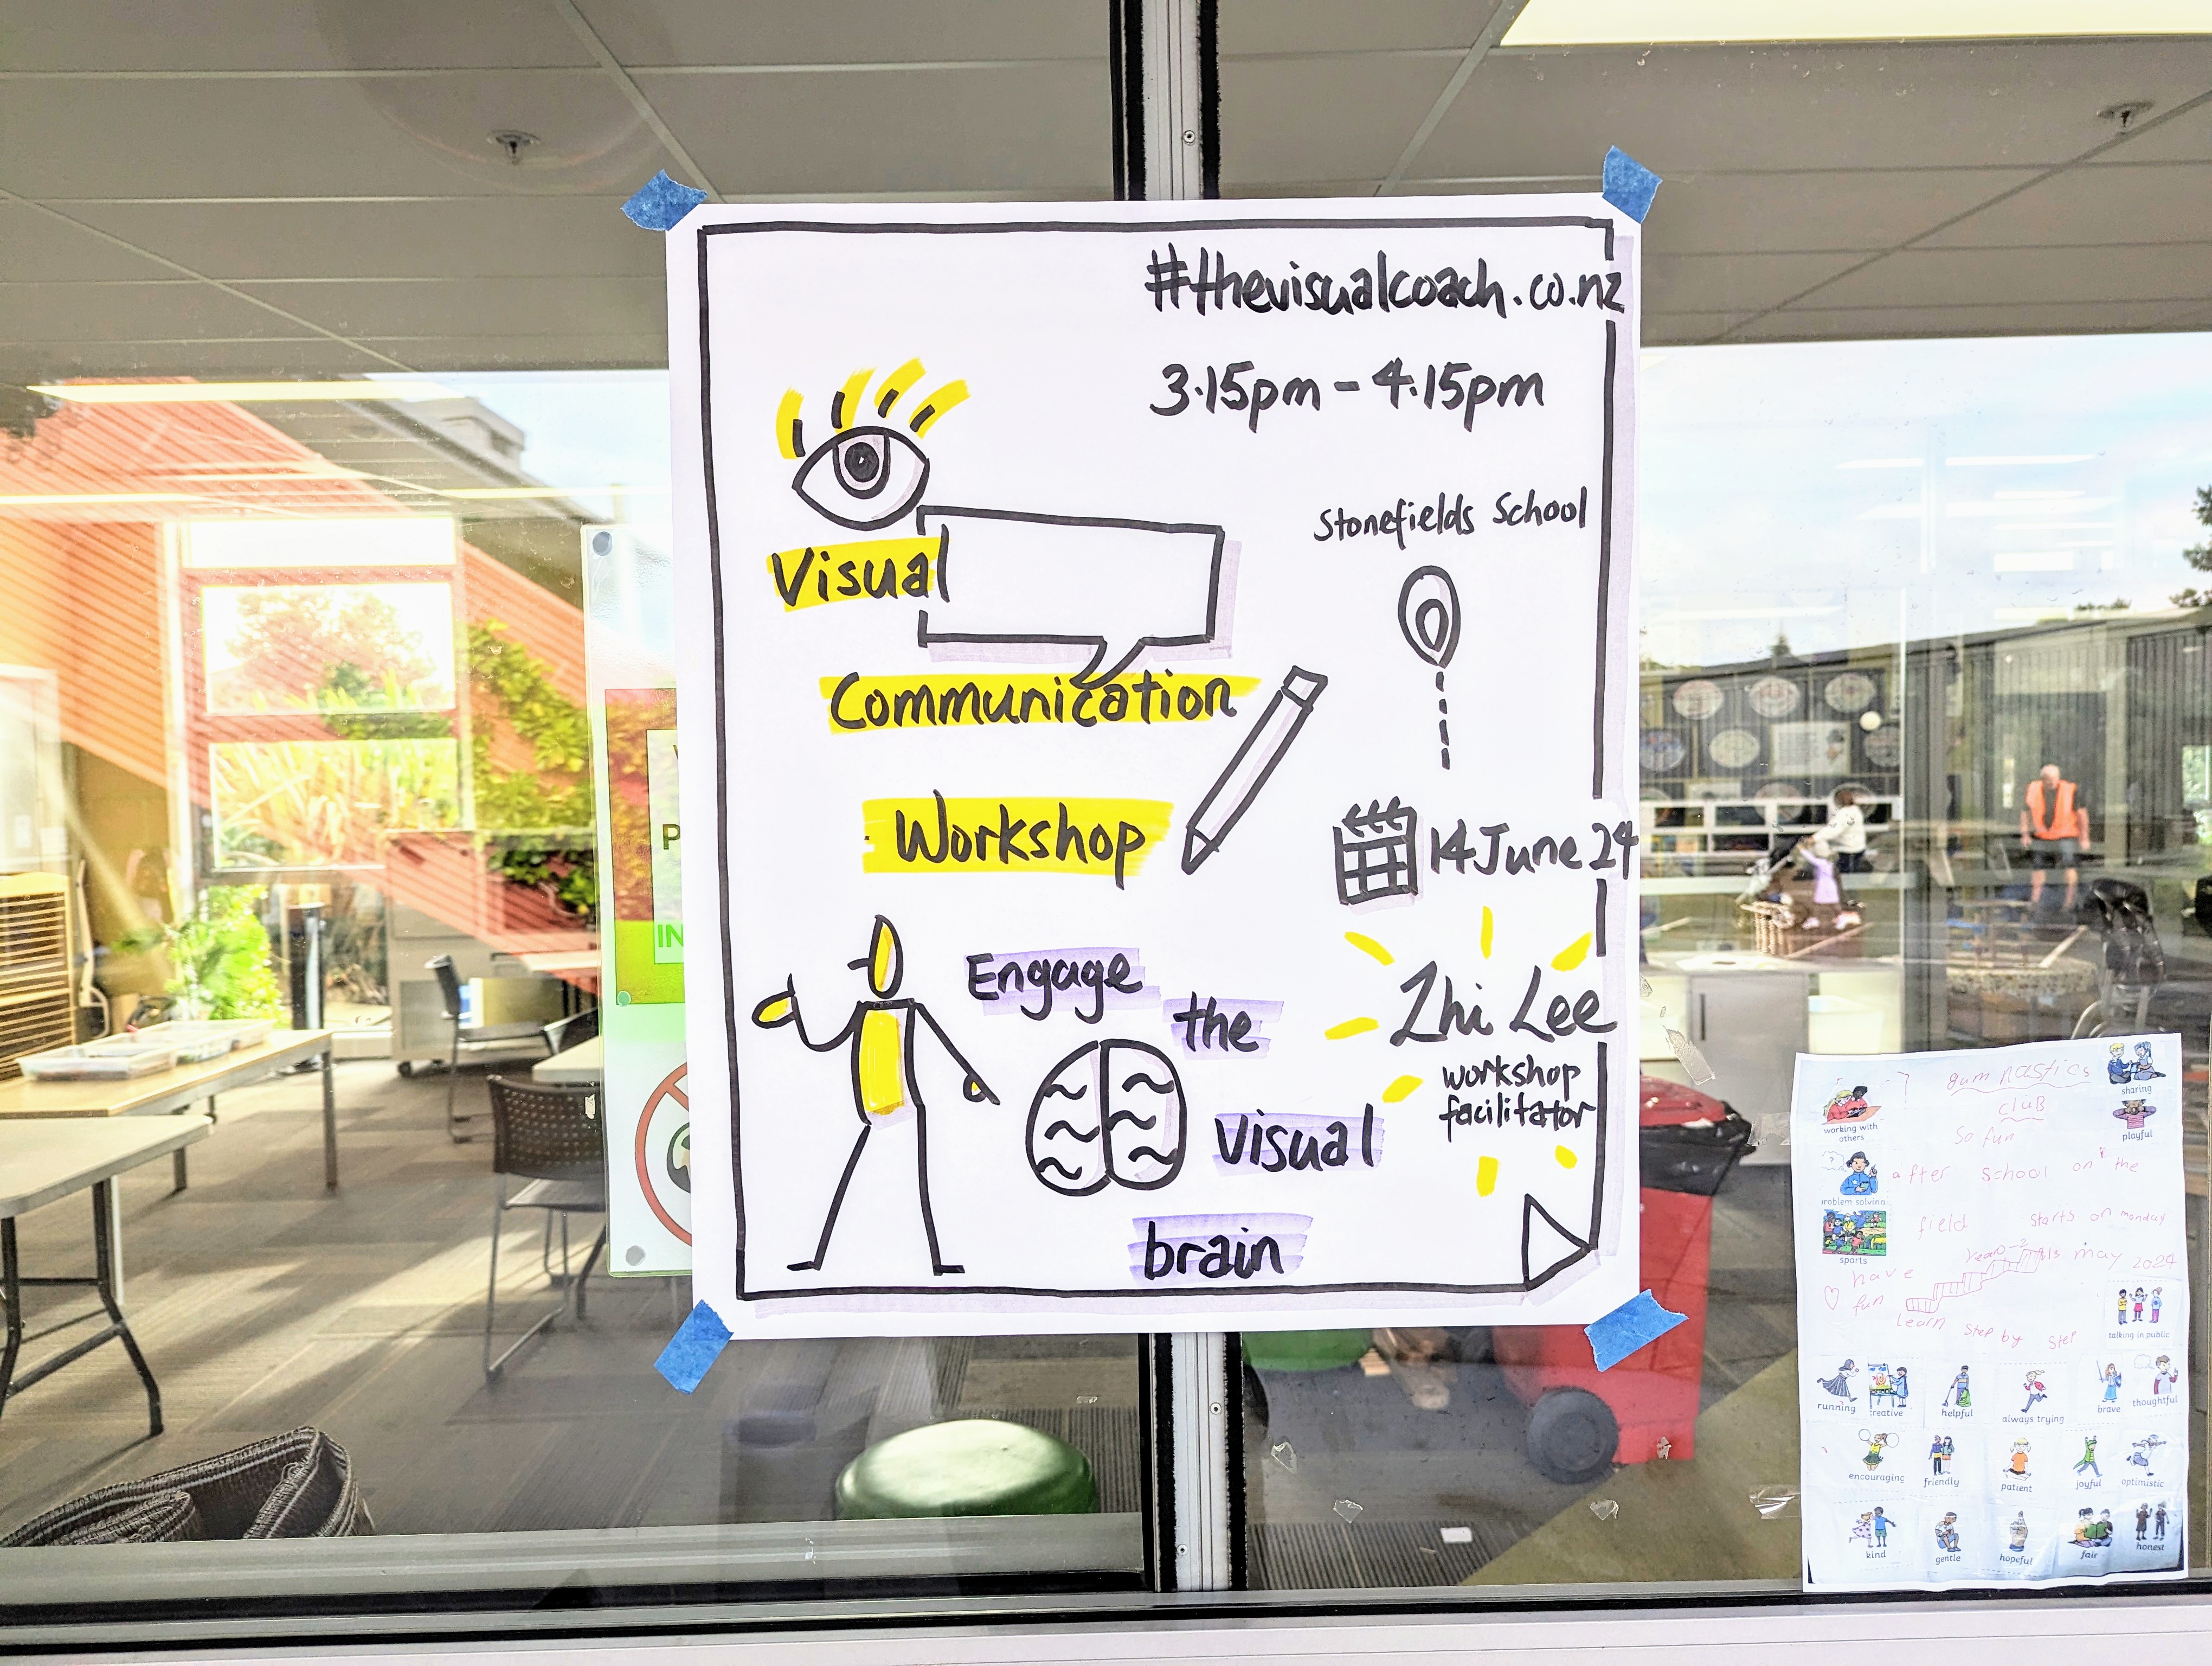 #thevisualcoach.co.nz
3.15pm - 4.15pm
Stonefields School
Visual
Communication
Workshop
14 June 24
Engage
the
visual
brain
Zhi Lee
workshop
facilitator
P
IN
gymnastics
club
so fun
after school on the
field starts on monday
may 2024
have
fun
Learn step by step
working with
others
sharing
playful
problem solving
sports
talking in public
running
creative
helpful
always trying
brave
thoughtful
encouraging
friendly
patient
joyful
optimistic
kind
gentle
hopeful
fair
honest